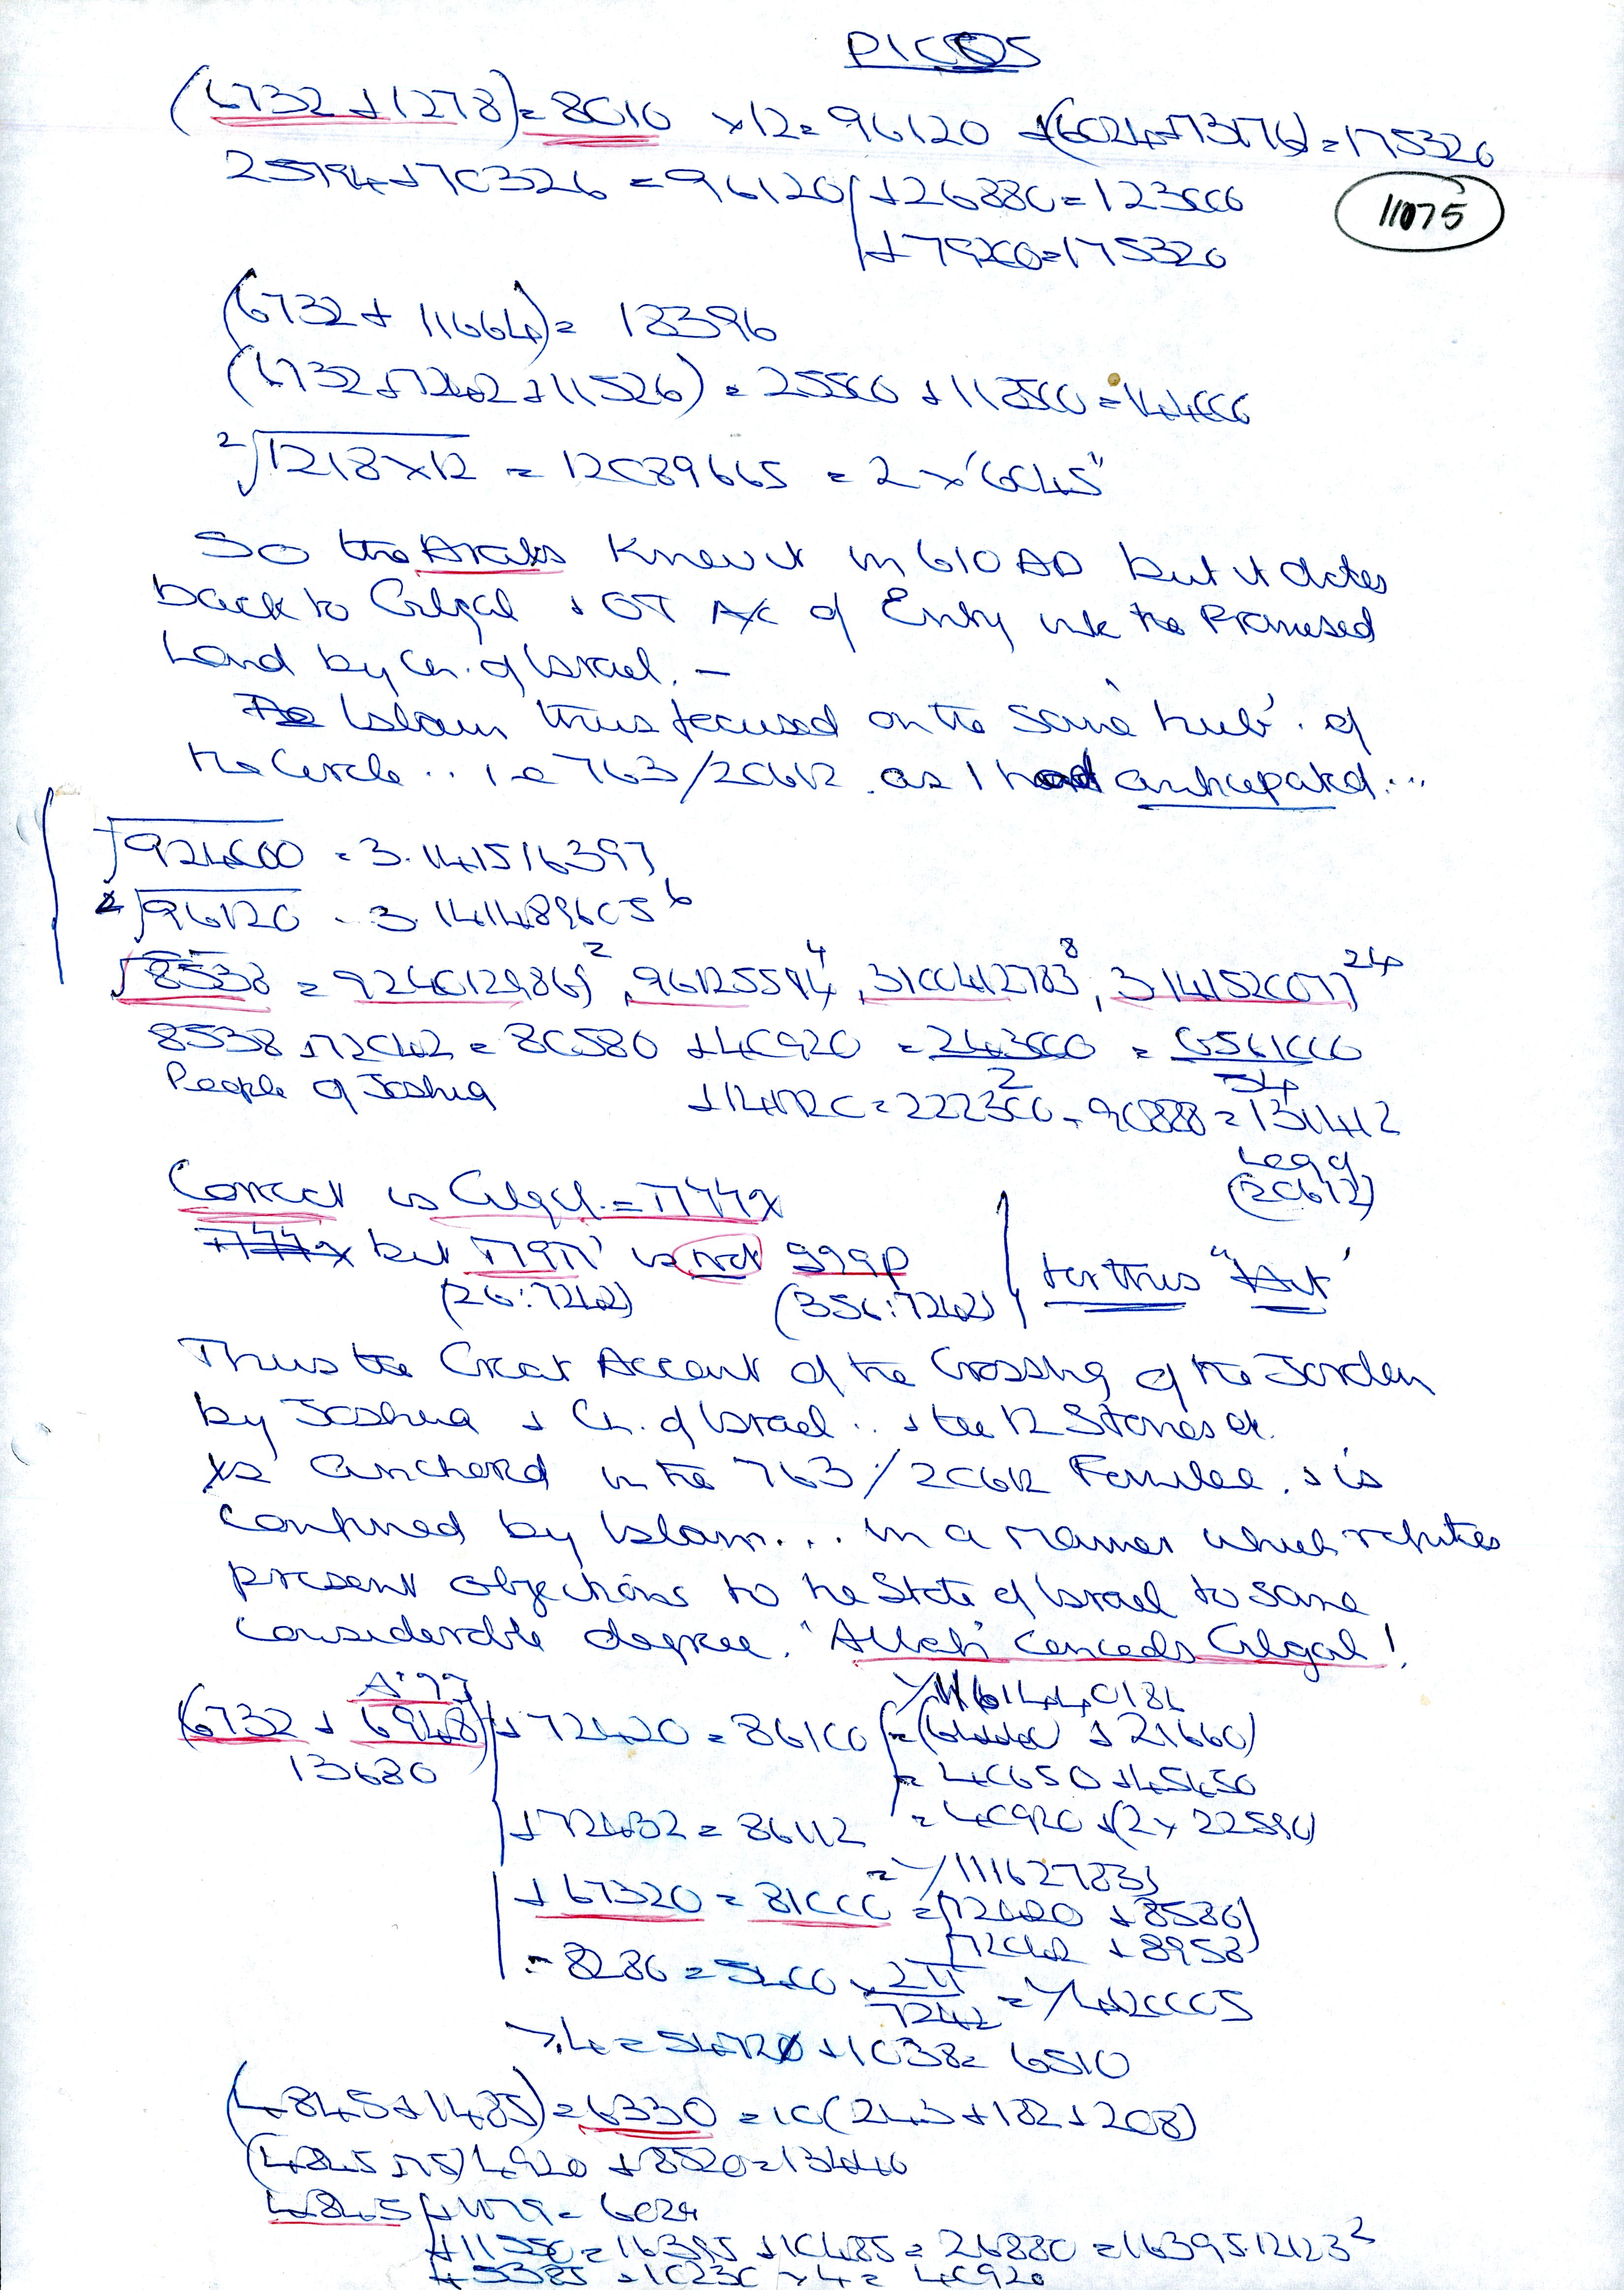 (6732 + 1278) = 8010 × 12 = 96120 + (6024 + 73176) = 175320
25794 + 70326 = 96120 + 26880 = 123000
11075
+ 79200 = 175320
(6732 + 11664) = 18396
(6732 + 7242 + 11526) = 25500 + 118500 = 144000
²√1218 × 12 = 12089665 = 2 × "6045"
So the Arabs knew it in 610 AD but it dates
back to Gilgal + OT A/c of Entry into the Promised
Land by Ch. of Israel. –
Islam thus focused on the same 'hub' of
the Circle .. i e 763/20612 as I had anticipated...
√924000 = 3.141516397
²√96120 = 3.1414896056
√8538 = 924012986², 96125594⁴, 3100412783⁸, 3.14152077²⁴
8538 + 72042 = 80580 + 40920 = 243000 = 6561000
People of Joshua
+ 14172C = 222300 - 90888 = 131412
Leg of
(20612)
Correct is Gilgal =
but is not 999p
(26:7242) (356:7242)
for this "Act"
Thus the Great Account of the Crossing of the Jordan
by Joshua + Ch. of Israel .. + the 12 Stones et.
is anchored in the 763/20612 Formulae. + is
confirmed by Islam... in a manner which refutes
present objections to the State of Israel to some
considerable degree. "Allah" concedes Gilgal!
A'99
(6732 + 6948) + 72420 = 86100
13680
= 40650 + 45450
+ 72432 = 86112 = 40920 + (2 × 22590)
= √111627833
+ 67320 = 81000 = (72420 + 8580)
72042 + 8958
- 8286 = 5400 × 2π/7242 = √
(4845 + 1485) = 6330 = 10(243 + 182 + 208)
(4845 + 75) 4920 + 8520 = 13440
4845 + 1179 = 6024
+ 11550 = 16395 + 10485 = 26880 = 16395.12123²
+ 5385 = 10230 × 4 = 40920